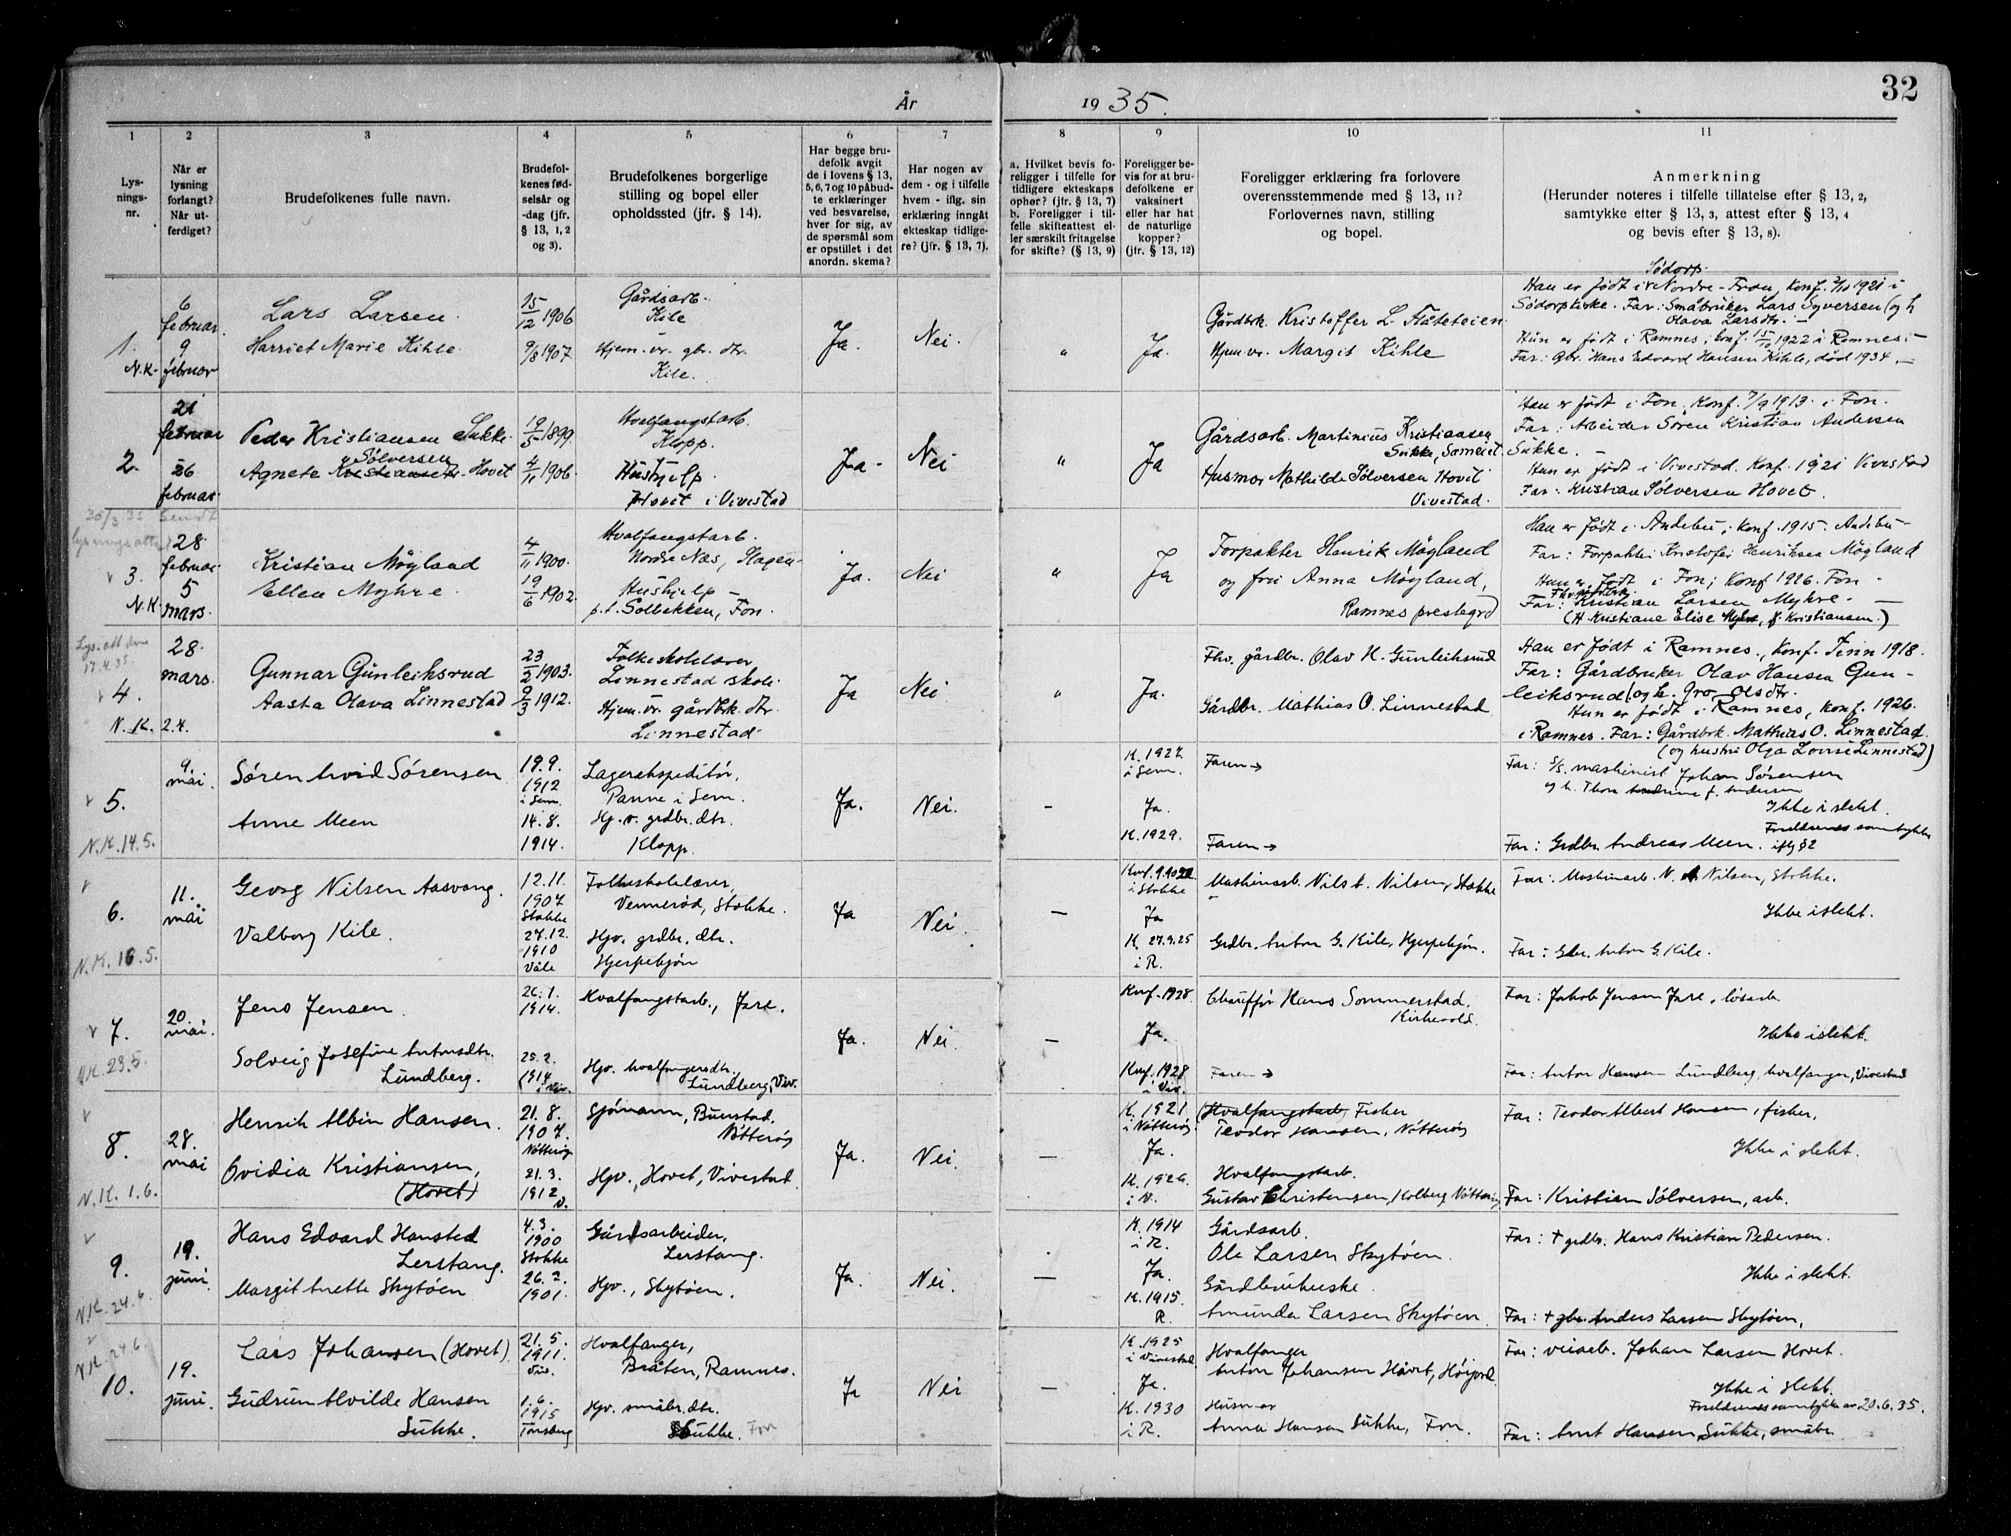 32
År 1935.
1 2 3 4 5 6 7 8 9 10 11
Lysningsnr.
Når er lysning forlangt? Når utferdiget?
Brudefolkenes fulle navn.
Brudefolkenes fødselsår og -dag (jfr. § 13, 1, 2 og 3).
Brudefolkenes borgerlige stilling og bopel eller opholdssted (jfr. § 14).
Har begge brudefolk avgit de i lovens § 13, 5, 6, 7 og 10 påbudte erklæringer ved besvarelse, hver for sig, av de spørsmål som er opstillet i det anordn. skema?
Har nogen av dem - og i tilfelle hvem - iflg. sin erklæring inngått ekteskap tidligere? (jfr. § 13, 7).
a. Hvilket bevis foreligger i tilfelle for tidligere ekteskaps ophør? (jfr. § 13, 7) b. Foreligger i tilfelle skifteattest eller særskilt fritagelse for skifte? (§ 13, 9)
Foreligger bevis for at brudefolkene er vaksinert eller har hat de naturlige kopper? (jfr. § 13, 12)
Foreligger erklæring fra forlovere overensstemmende med § 13, 11? Forlovernes navn, stilling og bopel.
Anmerkning (Herunder noteres i tilfelle tillatelse efter § 13, 2, samtykke efter § 13, 3, attest efter § 13, 4 og bevis efter § 13, 8).
1. N.K.
6 februar
9 februar
Lars Larsen
Harriet Marie Kihle
15/12 1906
9/8 1907.
Gårdsarb. Kile
Hjem.vr. gbr. dtr. Kile.
Ja. Nei. " Ja.
Gårdbrk. Kristoffer L. Flåteteien
Hjem.vr. Margit Kihle
Sødorp
Han er født i Nordre-Fron, Konf. 2/10 1921 i
Sødorp kirke. Far: Småbruker Lars Syversen (og h
Olava Larsdtr. -
Hun er født i Ramnes, konf. 15/10 1922 i Ramnes. -
Far: Gbr. Hans Edvard Hansen Kihle, død 1934. -
2.
21 februar
26 februar
Peder Kristiansen Sukke.
Agnete Sølversen Hovet
19/5 1899.
4/11 1906.
Hvalfangstarb. Klopp.
Hushjelp
Hovet i Vivestad
Ja. Nei " Ja
Gårdsarb. Martinius Kristiansen
Sukke, Someiet.
Husmor Mathilde Sølversen Hovet
Vivestad.
Han er født i Fon, Konf. 7/9 1913. i Fon.
Far: Arbeider Søren Kristian Andersen
Sukke. -
Hun er født i Vivestad. Konf. 1921 Vivestad
Far: Kristian Sølversen Hovet.
30/3 35 Sendt
lysningsattest
3. N.K.
28 februar
5 mars.
Kristian Møyland
Ellen Myhre.
4/11 1900.
19/6 1902.
Hvalfangstarb.
Nordre Næs, Slagen
Hushjelp -
p.t. Solbakken, Fon.
Ja. Nei " Ja
Forpakter Henrik Møyland
og frú Anna Møyland,
Ramnes prestegrd
Han er født i Andebu; konf. 1915. Andebu -
Far: Forpakter Kristofer Henriksen Møyland
Hun er født i Fon; Konf 1926. Fon -
Far: Kristian Larsen Myhre. -
(H. Kristiane Elise Myhre, f. Kristiansen.)
Lys. att den
17.4.35.
4. N.K. 2.4.
28. mars.
Gunnar Gunleiksrud
Aasta Olava Linnestad
23/2 1903.
9/3 1912.
Folkeskolelærer
Linnestad skole
Hjem.vr. gårdbrk. dtr.
Linnestad.
Ja Nei " Ja.
Fhv. gårdbr. Olav H. Gunleiksrud
Gårdbr. Mathias O. Linnestad.
Han er født i Ramnes., Konf. Tinn 1918.
Far: Gårdbruker Olav Hansen Gun-
leiksrud (og h. Gro Olsdtr.
Hun er født i Ramnes, konf. 1926
i Ramnes. Far: Gårdbrk. Mathias O. Linnestad.
(og hustru Olga Lovise Linnestad)
5. N.K. 14.5.
9. mai.
Søren Arvid Sørensen
Anne Meen
19.9. 1912 i Sem.
14.8. 1914.
Lagerekspeditør,
Panne i Sem.
Hj. v. grdbr. dtr.
Klopp.
Ja. Nei. -
K. 1927. i Sem. Ja.
K. 1929.
Faren →
Faren →
Far: S/S. maskinist Johan Sørensen
og h. Thora Andrine f. Andersen
Ikke i slekt.
Foreldrenes samtykke
Far: Grdbr. Andreas Meen. iflg §2
6. N.K. 16.5.
11. mai
Georg Nilsen Aasvang.
Valborg Kile.
12.11. 1907 Stokke
27.12. 1910 Våle
Folkeskolelærer,
Vennerød, Stokke.
Hjv. grdbr. dtr.
Hjerpekjøn
Ja Nei. -
i Stokke Ja
K. 27.9.25 i R.
Maskinarb. Nils A. Nilsen, Stokke
Grdbr. Anton G. Kile, Hjerpekjøn.
Far: Maskinarb. N. A. Nilsen, Stokke.
Ikke i slekt.
Far: Gbr. Anton G. Kile.
7. N.K. 23.5.
20. mai.
Jens Jensen
Solveig Josefine Antonsdtr.
Lundberg.
26.1. 1914.
25.2. 1914 i Viv.
Hvalfangstarb., Jare.
Hjv. hvalfangersdtr.
Lundberg, Viv.
Ja. Nei. -
Konf. 1928. Ja.
Konf. 1928 i Viv.
Chauffør Hans Sommerstad,
Kirkevold.
Faren →
Far: Jakob Jensen Jare, løsarb.
Ikke i slekt.
Far: Anton Hansen Lundberg, hvalfanger, Vivestad
8. N.K. 1.6.
28. mai
Henrik Albin Hansen.
Ovidia Kristiansen,
(Hovet)
21.8. 1907. Nøtterøy
21.3. 1912 V.
Sjømann, Bunstad.
Nøtterøy
Hjv., Hovet, Vivestad.
Ja. Nei. -
K. 1921 i Nøtterøy Ja.
K. 1926. i V.
Hvalfangstarb, Fisker
Teodor Hansen, Nøtterøy
Hvalfangstarb.
Gustav Christensen, Kolberg Nøtterøy
Far: Teodor Albert Hansen, fisker,
Ikke i slekt.
Far: Kristian Sølversen, arb.
9. N.K. 24.6.
19. juni
Hans Edvard Hansted
Lerstang.
Margit Anette Skytøen
4.3. 1900 Stokke
26.2. 1901.
Gårdsarbeider,
Lerstang.
Hjv., Skytøen.
Ja. Nei. -
K. 1914 i R. Ja.
K. 1915. R.
Gårdsarb.
Ole Larsen Skytøen.
Gårdbrukerske
Amunda Larsen Skytøen.
Far: + grdbr. Hans Kristian Pedersen.
Ikke i slekt.
Far: + gbr. Anders Larsen Skytøen,
N.K. 24.6.
10.
19. juni.
Lars Johansen (Hovet)
Gudrun Alvilde Hansen
Sukke.
21.5. 1911. Viv.
1.6. 1915 Tønsberg
Hvalfanger,
Bråten, Ramnes.
Hjv. småbr. dtr.
Sukke. Fon
Nei -
K. 1925 i Vivestad. Ja.
K. 1930 i R.
Hvalfanger
Anton Johansen Hovet, Høijord.
Husmor
Anna Hansen Sukke, Fon.
Far: veiarb. Johan Larsen Hovet.
Ikke i slekt.
Foreldrenes samtykke av 20.6.35.
Far: Anton Hansen Sukke, småbr.